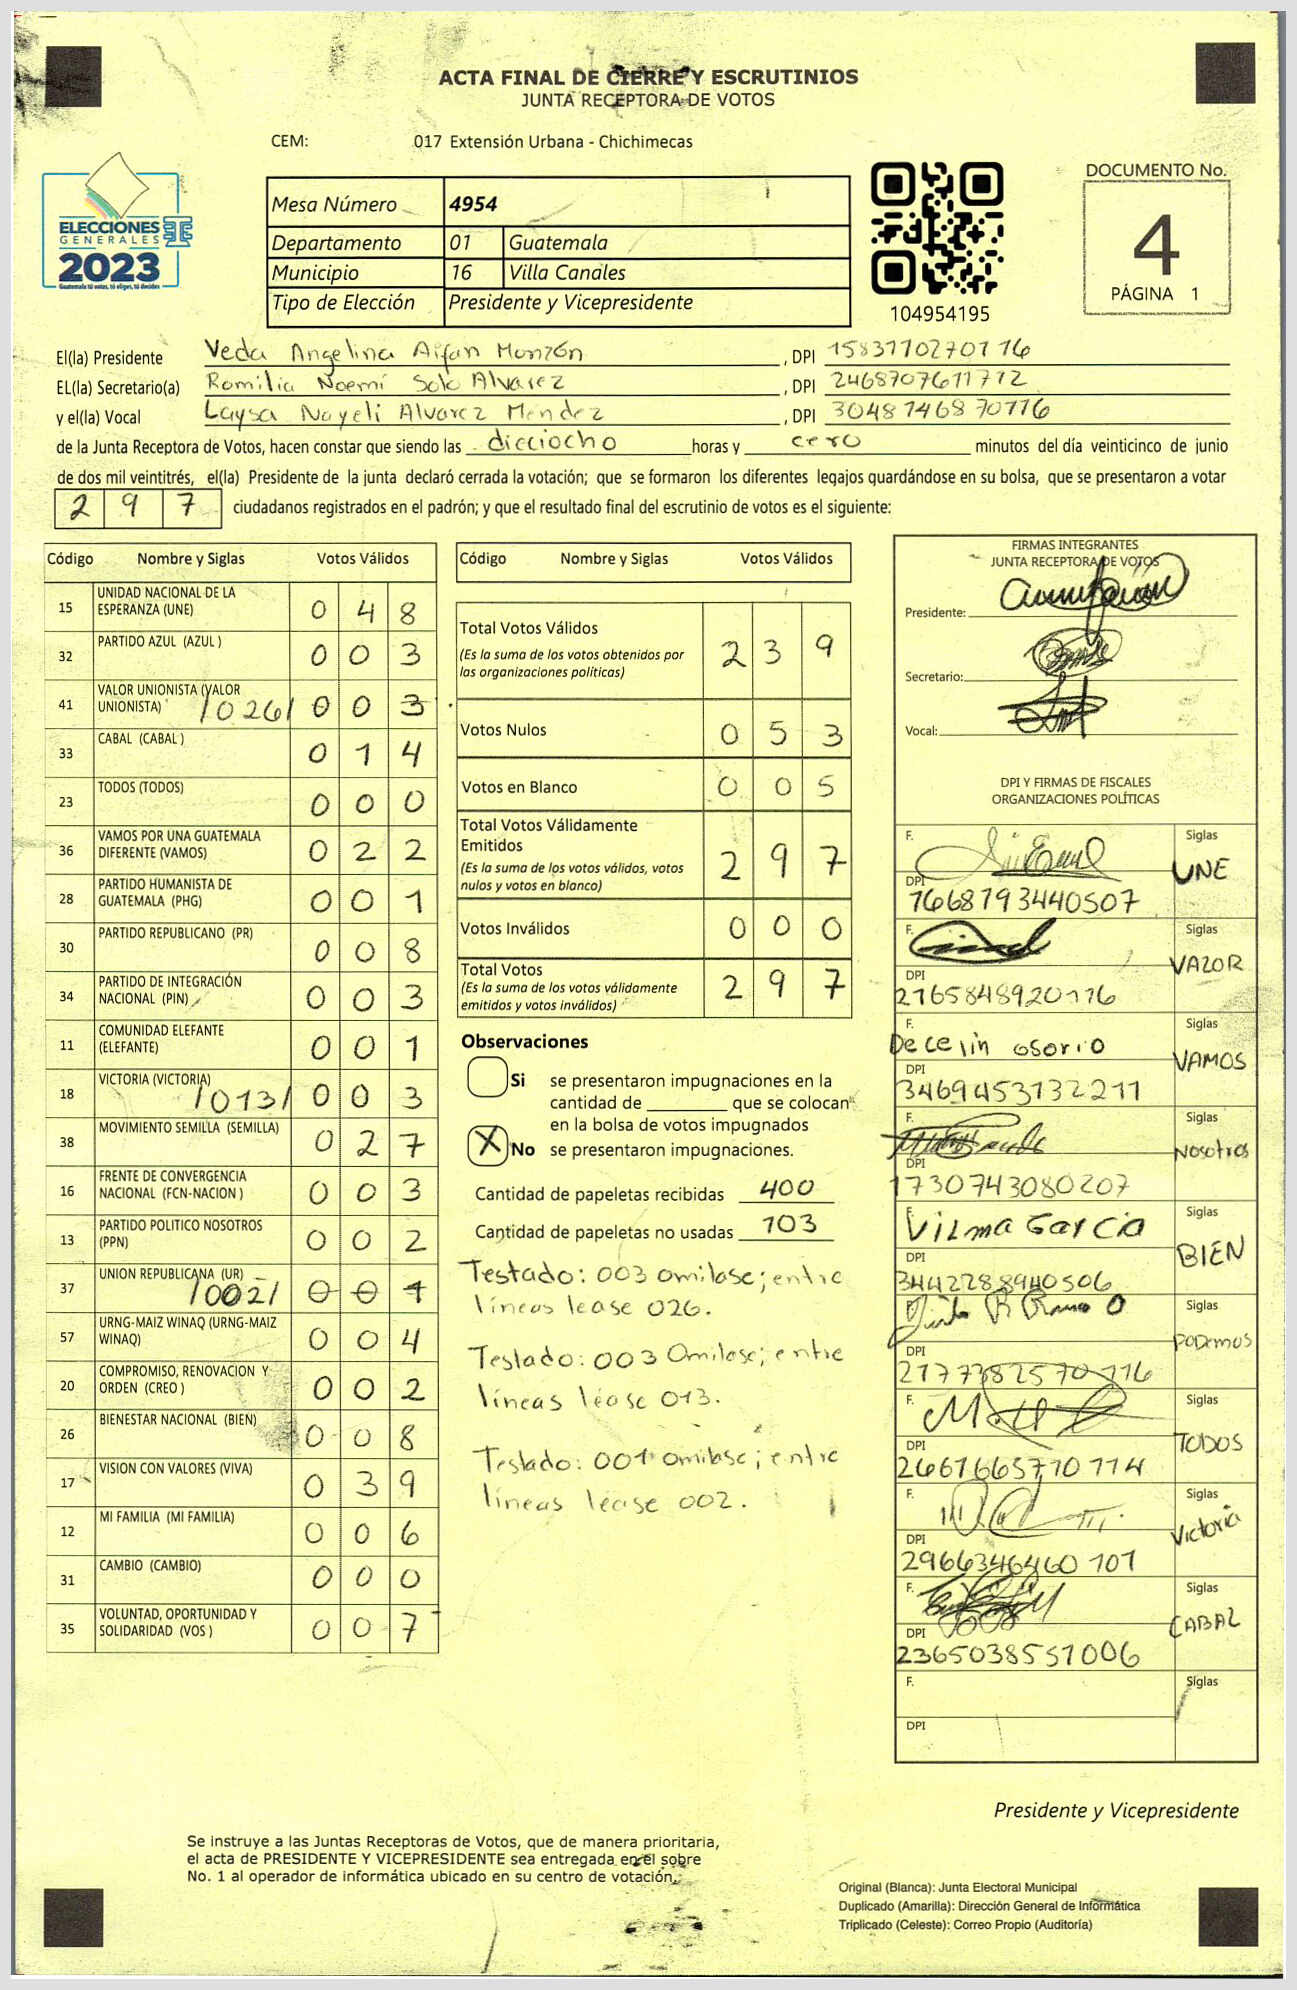 ACTA FINAL DE CIERRE Y ESCRUTINIOS
JUNTA RECEPTORA DE VOTOS
CEM: 017 Extensión Urbana - Chichimecas
ELECCIONES
GENERALES
2023
Guatemala tú votas, tú eliges, tú decides
Mesa Número 4954
Departamento 01 Guatemala
Municipio 16 Villa Canales
Tipo de Elección Presidente y Vicepresidente
104954195
DOCUMENTO No.
4
PÁGINA 1
El(la) Presidente Veda Angelina Aifan Monzón, DPI
EL(la) Secretario(a) Romilia Noemí Solo Alvarez, DPI 2468707611712
y el(la) Vocal Laysa Nayeli Alvarez Mendez, DPI 3048746870116
de la Junta Receptora de Votos, hacen constar que siendo las dieciocho horas y cero minutos del día veinticinco de junio
de dos mil veintitrés, el(la) Presidente de la junta declaró cerrada la votación; que se formaron los diferentes legajos guardándose en su bolsa, que se presentaron a votar
297 ciudadanos registrados en el padrón; y que el resultado final del escrutinio de votos es el siguiente:
Código Nombre y Siglas Votos Válidos
15 UNIDAD NACIONAL DE LA ESPERANZA (UNE) 048
32 PARTIDO AZUL (AZUL ) 003
41 VALOR UNIONISTA (VALOR UNIONISTA) /026/ 003
33 CABAL (CABAL ) 014
23 TODOS (TODOS) 000
36 VAMOS POR UNA GUATEMALA DIFERENTE (VAMOS) 022
28 PARTIDO HUMANISTA DE GUATEMALA (PHG) 001
30 PARTIDO REPUBLICANO (PR) 008
34 PARTIDO DE INTEGRACIÓN NACIONAL (PIN) 003
11 COMUNIDAD ELEFANTE (ELEFANTE) 001
18 VICTORIA (VICTORIA) /013/ 003
38 MOVIMIENTO SEMILLA (SEMILLA) 027
16 FRENTE DE CONVERGENCIA NACIONAL (FCN-NACION ) 003
13 PARTIDO POLITICO NOSOTROS (PPN) 002
37 UNION REPUBLICANA (UR) /002/ 001
57 URNG-MAIZ WINAQ (URNG-MAIZ WINAQ) 004
20 COMPROMISO, RENOVACION Y ORDEN (CREO ) 002
26 BIENESTAR NACIONAL (BIEN) 008
17 VISION CON VALORES (VIVA) 039
12 MI FAMILIA (MI FAMILIA) 006
31 CAMBIO (CAMBIO) 000
35 VOLUNTAD, OPORTUNIDAD Y SOLIDARIDAD (VOS ) 007
Código Nombre y Siglas Votos Válidos
Total Votos Válidos 239
(Es la suma de los votos obtenidos por
las organizaciones políticas)
Votos Nulos 053
Votos en Blanco 005
Total Votos Válidamente
Emitidos 297
(Es la suma de los votos válidos, votos
nulos y votos en blanco)
Votos Inválidos 000
Total Votos 297
(Es la suma de los votos válidamente
emitidos y votos inválidos)
Observaciones
Si se presentaron impugnaciones en la
cantidad de ________ que se colocan
en la bolsa de votos impugnados
X No se presentaron impugnaciones.
Cantidad de papeletas recibidas 400
Cantidad de papeletas no usadas 103
Testado: 003 omitase; entre
líneas lease 026.
Testado: 003 Omitase; entre
líneas léase 013.
Testado: 001 omitase; entre
líneas léase 002.
FIRMAS INTEGRANTES
JUNTA RECEPTORA DE VOTOS
Presidente:
Secretario:
Vocal:
DPI Y FIRMAS DE FISCALES
ORGANIZACIONES POLÍTICAS
F. Siglas UNE
DPI 1668793440507
F. Siglas VALOR
DPI 2165848920116
F. Decelin osorio Siglas VAMOS
DPI 3469453132211
F. Siglas Nosotros
DPI 1730743080207
F. Vilma Garcia Siglas BIEN
DPI 3442288940506
F. Siglas PODEMOS
DPI 2177382570116
F. Siglas TODOS
DPI 2661665710114
F. Siglas Victoria
DPI 2966346460101
F. Siglas CABAL
DPI 2365038551006
F. Siglas
DPI
Presidente y Vicepresidente
Se instruye a las Juntas Receptoras de Votos, que de manera prioritaria,
el acta de PRESIDENTE Y VICEPRESIDENTE sea entregada en el sobre
No. 1 al operador de informática ubicado en su centro de votación.
Original (Blanca): Junta Electoral Municipal
Duplicado (Amarilla): Dirección General de Informática
Triplicado (Celeste): Correo Propio (Auditoría)